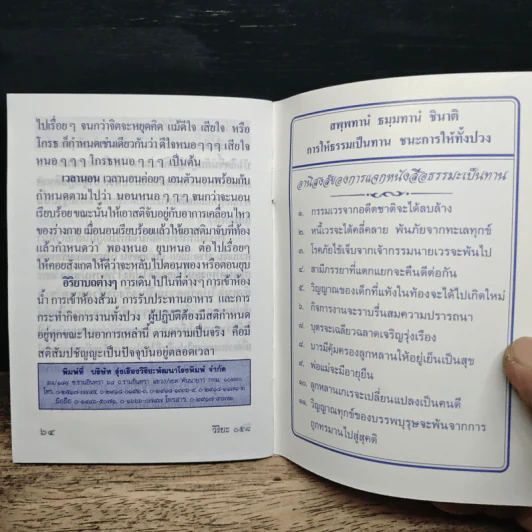 ไปเรื่อยๆ จนกว่าจิตจะหยุดคิด แม้ดีใจ เสียใจ หรือ
โกรธ ก็กำหนดเช่นเดียวกันว่า ดีใจหนอ ๆ ๆ ๆ เสียใจ
หนอ ๆ ๆ ๆ โกรธหนอ ๆ ๆ ๆ เป็นต้น
เวลานอน เวลานอนค่อยๆ เอนตัวนอนพร้อมกับ
กำหนดตามไปว่า นอนหนอ ๆ ๆ ๆ จนกว่าจะนอน
เรียบร้อย ขณะนั้นให้เอาสติจับอยู่กับอาการเคลื่อนไหว
ของร่างกาย เมื่อนอนเรียบร้อยแล้วให้เอาสติมาจับที่ท้อง
แล้วกำหนดว่า พองหนอ ยุบหนอ ต่อไปเรื่อยๆ
ให้คอยสังเกตให้ดีว่าจะหลับไปตอนพอง หรือตอนยุบ
อิริยาบถต่างๆ การเดินไปในที่ต่างๆ การเข้าห้อง
น้ำ การเข้าห้องส้วม การรับประทานอาหาร และการ
กระทำกิจการงานทั้งปวง ผู้ปฏิบัติต้องมีสติกำหนด
อยู่ทุกขณะในอาการเหล่านี้ ตามความเป็นจริง คือมี
สติสัมปชัญญะเป็นปัจจุบันอยู่ตลอดเวลา
พิมพ์ที่ บริษัท รุ่งเรืองวิริยะพัฒนาโรงพิมพ์ จำกัด
๖๔
วิริยะ ๐๕๘
สพฺพทานํ ธมฺมทานํ ชินาติ
การให้ธรรมเป็นทาน ชนะการให้ทั้งปวง
อานิสงส์ของการแจกหนังสือธรรมะเป็นทาน
๑. กรรมเวรจากอดีตชาติจะได้ลบล้าง
๒. หนี้เวรจะได้คลี่คลาย พ้นภัยจากทะเลทุกข์
๓. โรคภัยไข้เจ็บจากเจ้ากรรมนายเวรจะพ้นไป
๔. สามีภรรยาที่แตกแยกจะคืนดีต่อกัน
๕. วิญญาณของเด็กที่แท้งในท้องจะได้ไปเกิดใหม่
๖. กิจการงานจะราบรื่นสมความปรารถนา
๗. บุตรจะเฉลียวฉลาดเจริญรุ่งเรือง
๘. บารมีคุ้มครองลูกหลานให้อยู่เย็นเป็นสุข
๙. พ่อแม่จะมีอายุยืน
๑๐. ลูกหลานเกเรจะเปลี่ยนแปลงเป็นคนดี
๑๑. วิญญาณทุกข์ของบรรพบุรุษจะพ้นจากการ
ถูกทรมานไปสู่สุคติ